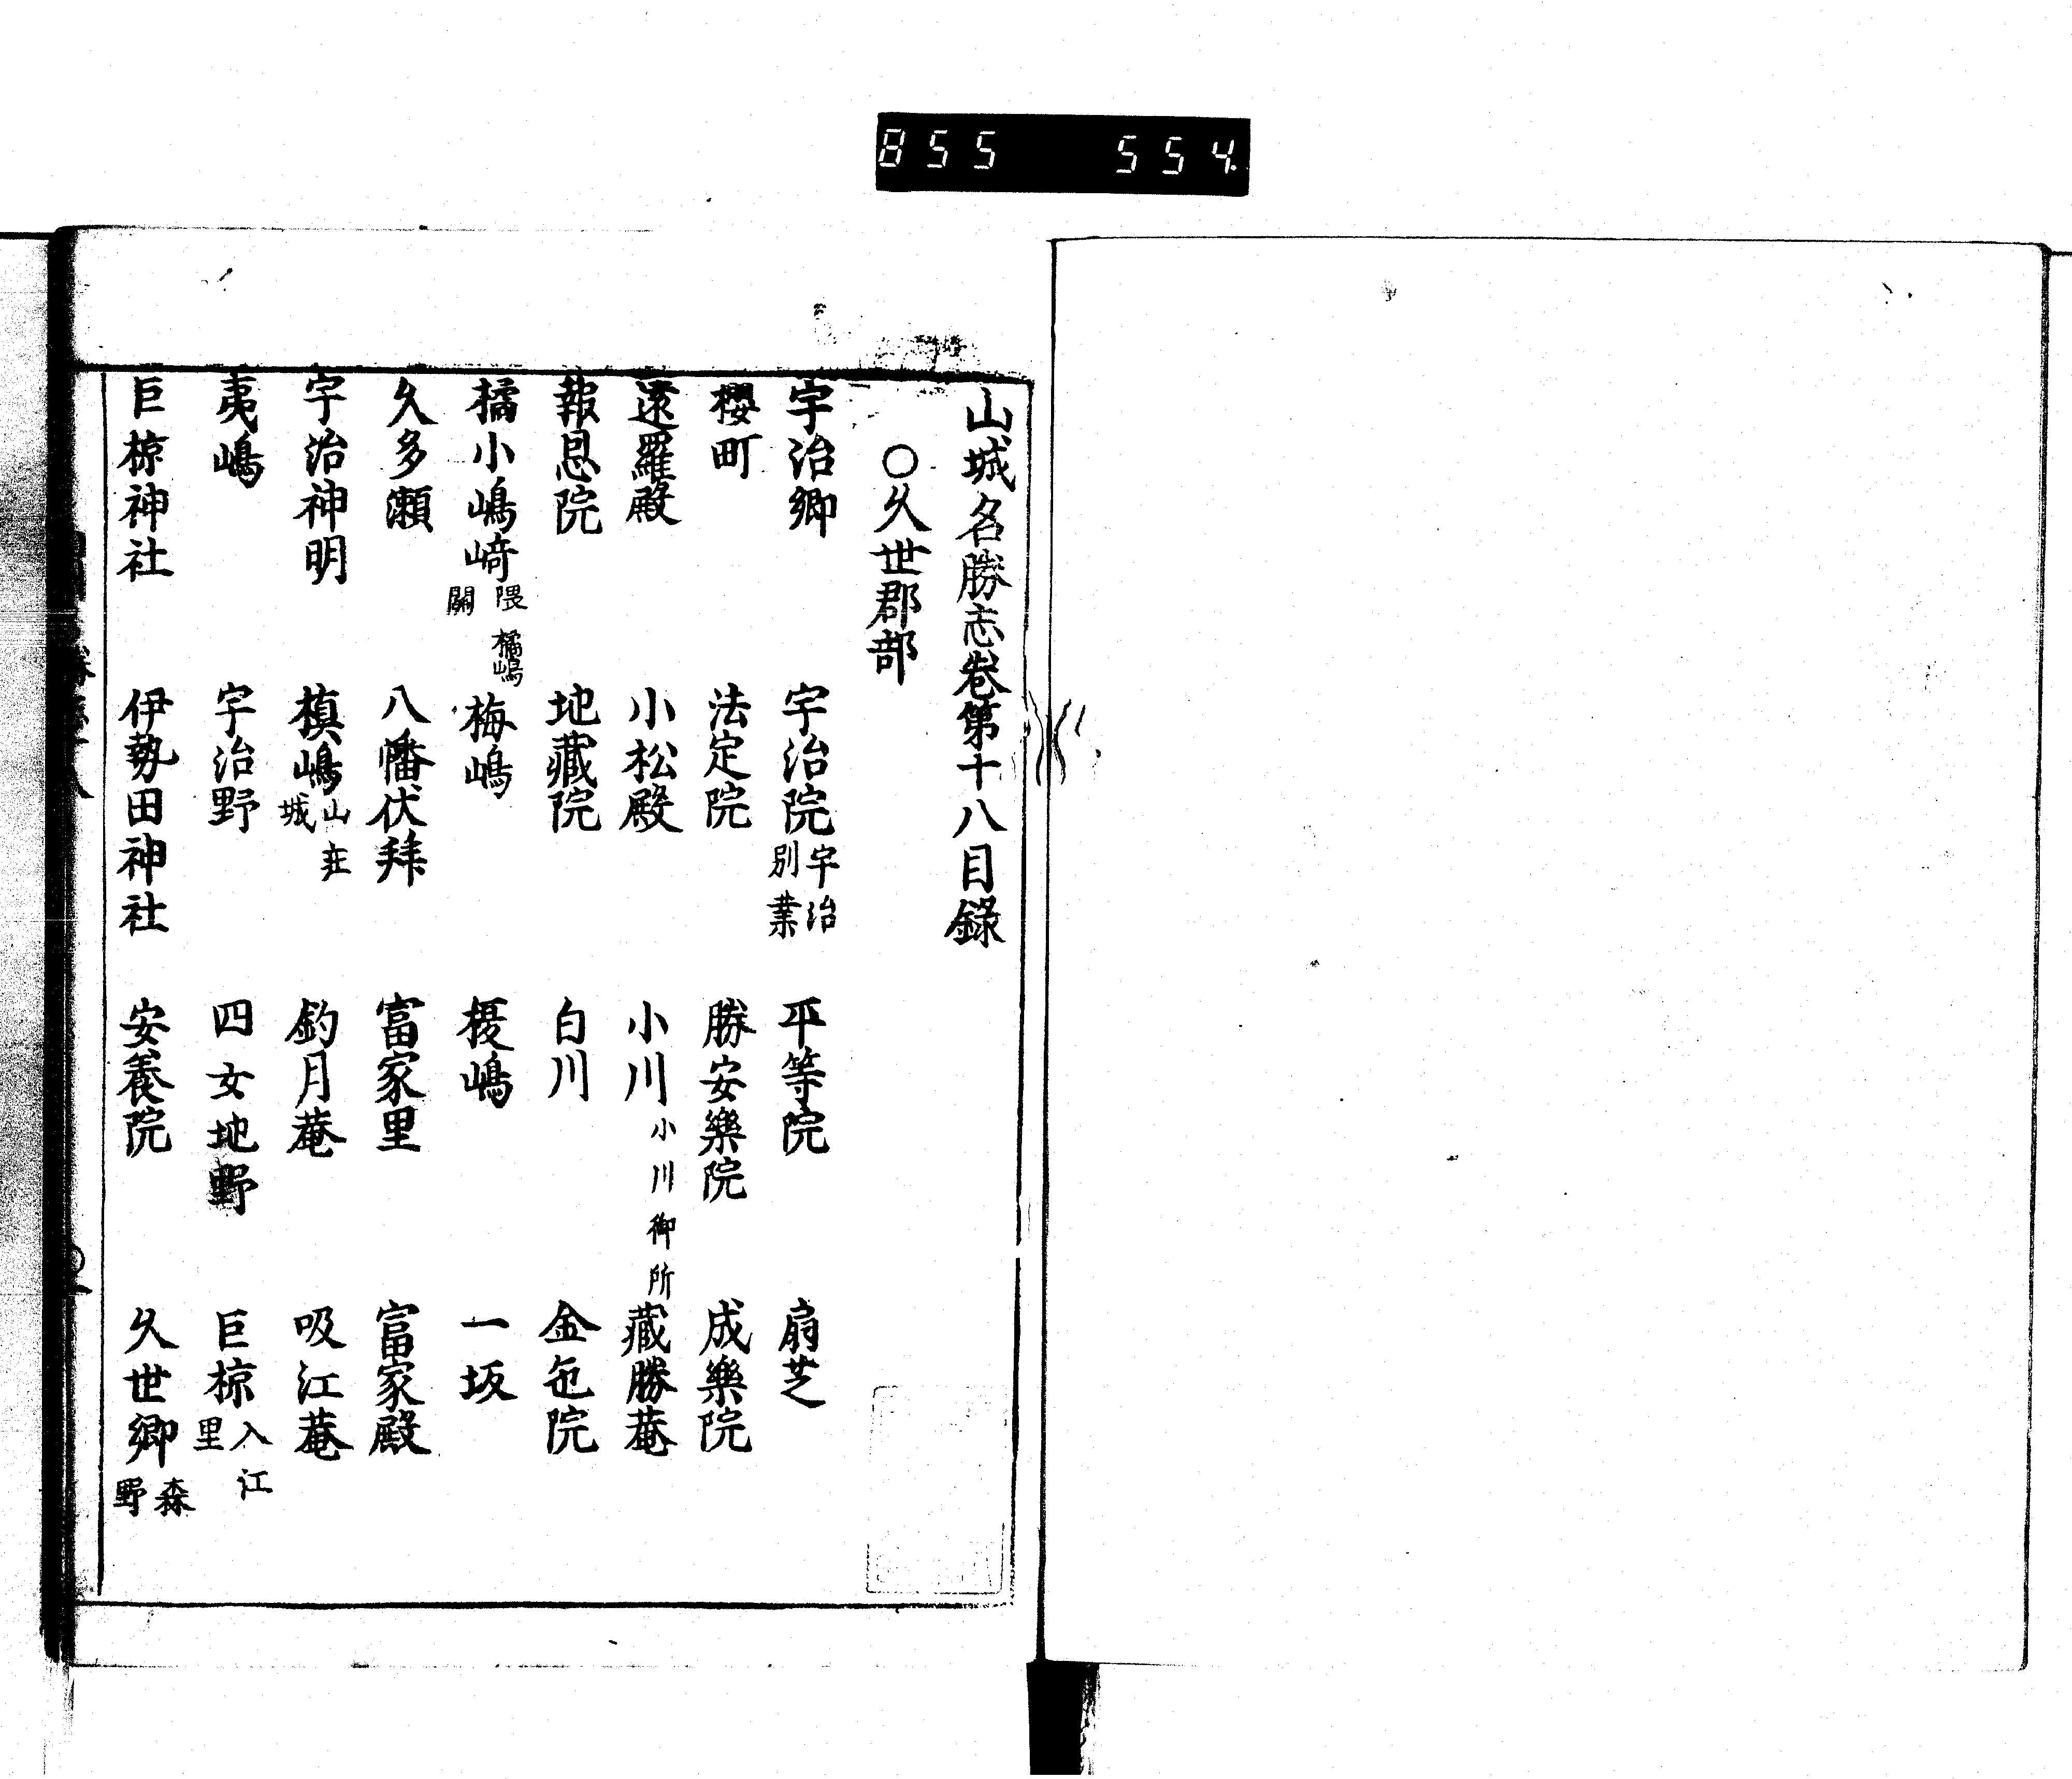 855 554
山城名勝志卷第十八目錄
○久世郡部
宇治郷 宇治院 宇治別業 平等院 扇芝
櫻町 法定院 勝安樂院 成樂院
遠羅殿 小松殿 小川 小川御所 藏勝菴
報恩院 地藏院 白川 金色院
橘小嶋﨑 隈 橘嶋 關 梅嶋 榎嶋 一坂
久多瀬 八幡伏拜 富家里 富家殿
宇治神明 槙嶋 山庄 城 釣月菴 吸江菴
夷嶋 宇治野 四女地野 巨椋 入江 里
巨椋神社 伊勢田神社 安養院 久世郷 森 野